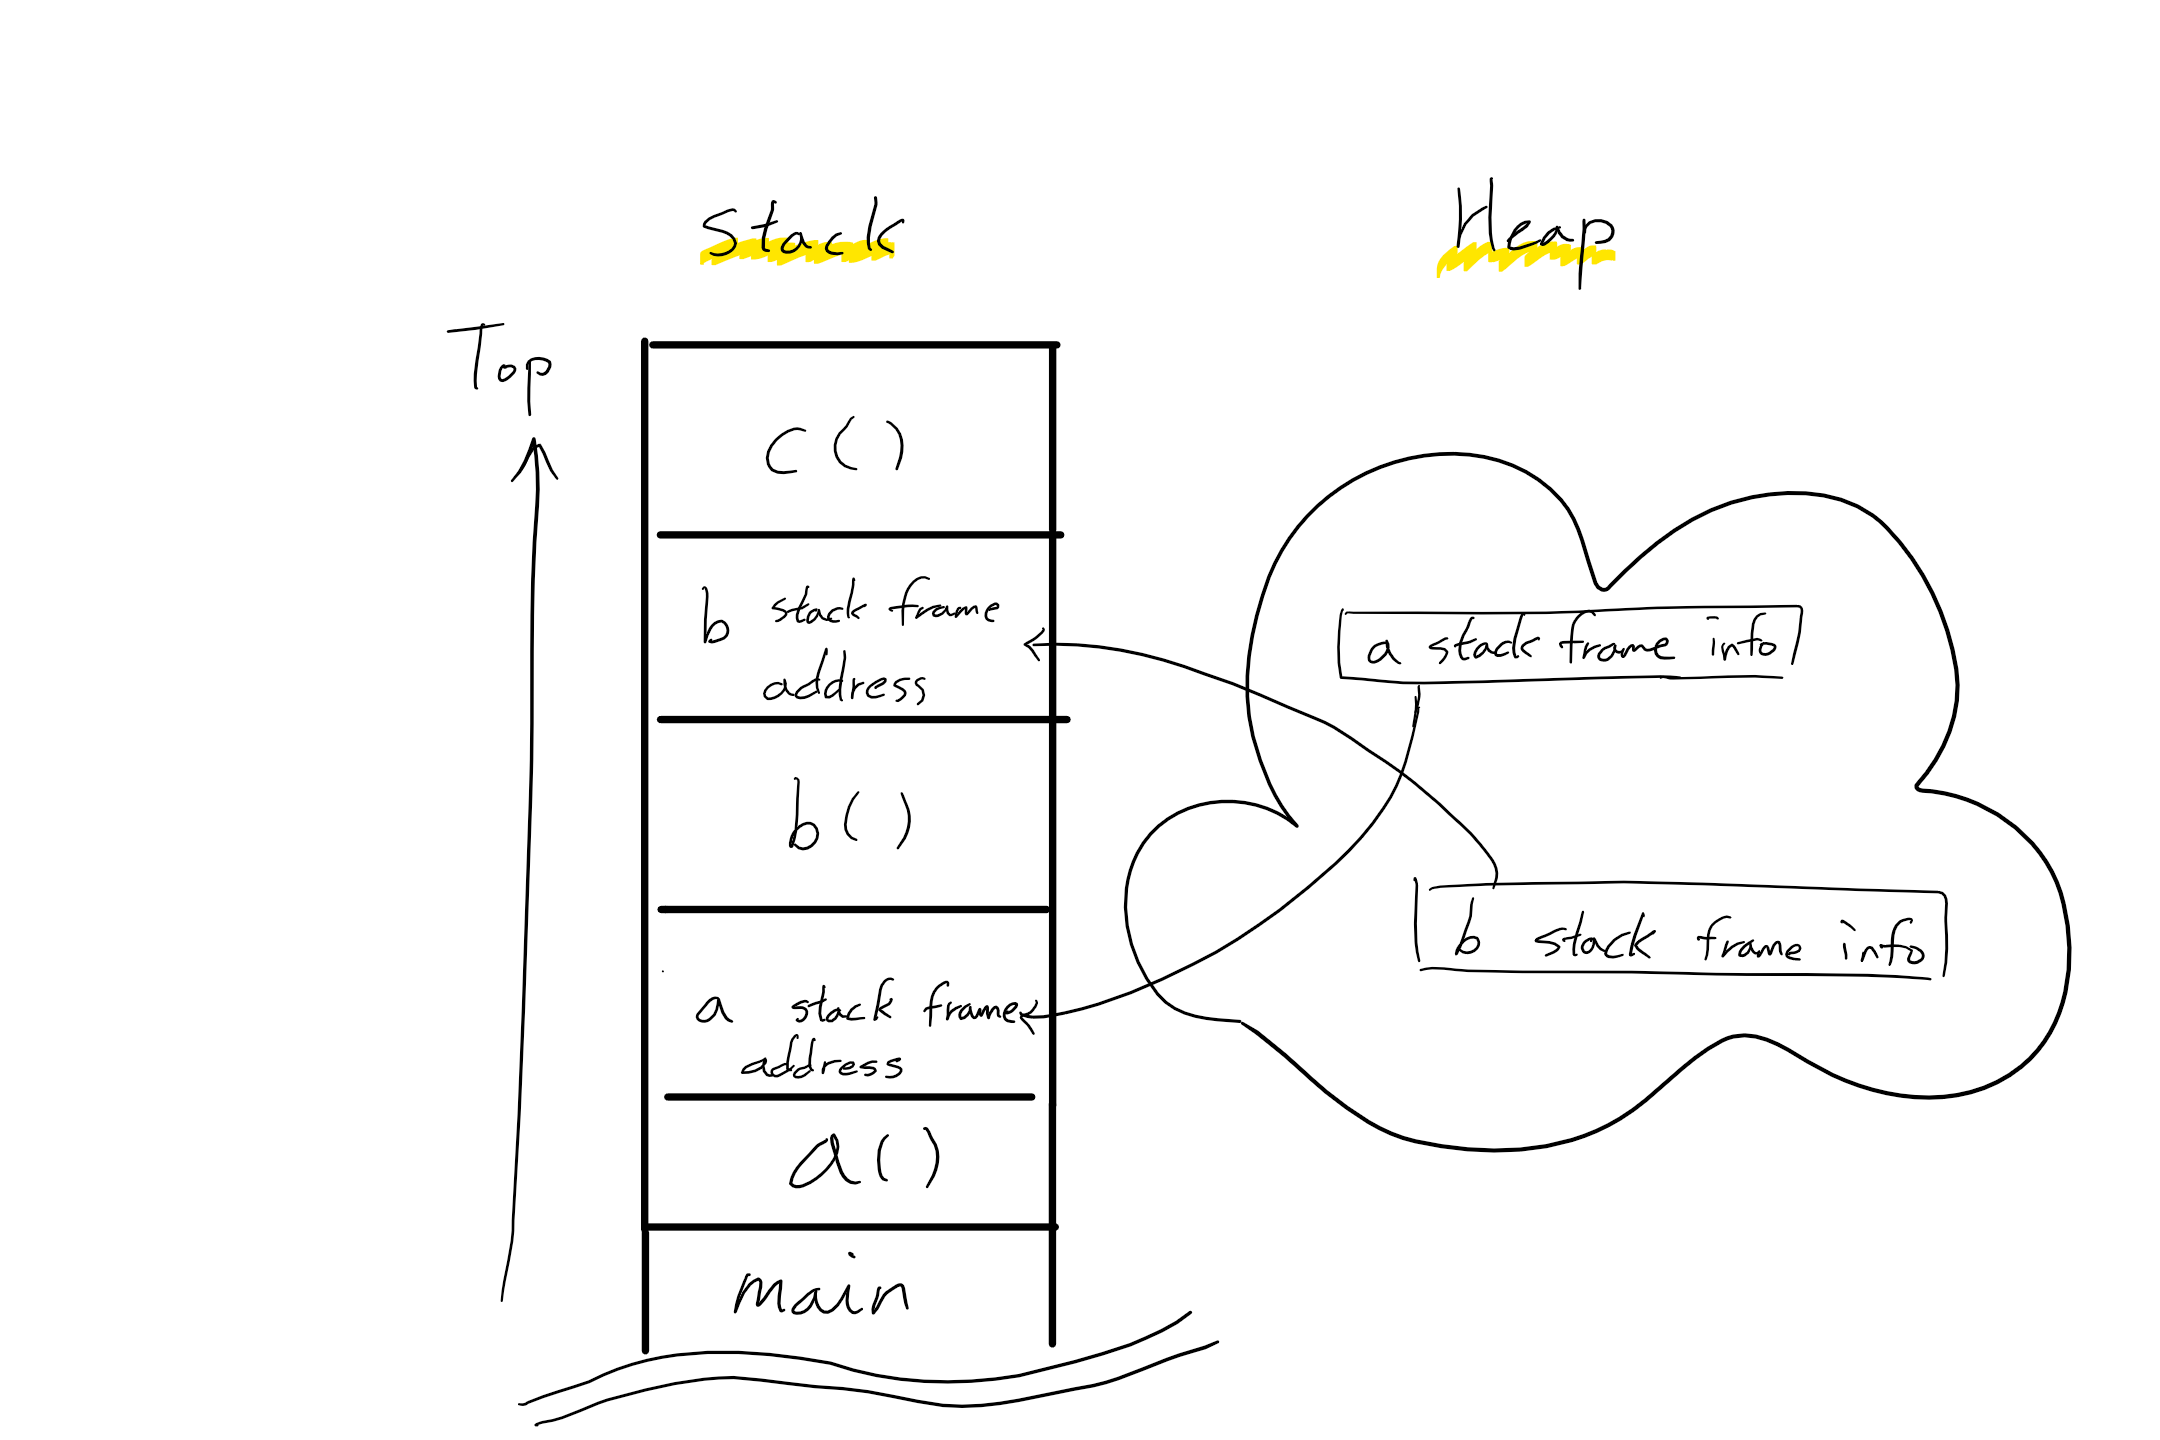 Stack
Heap
Top
c()
b stack frame
address
b()
a stack frame
address
a()
main
a stack frame info
b stack frame info